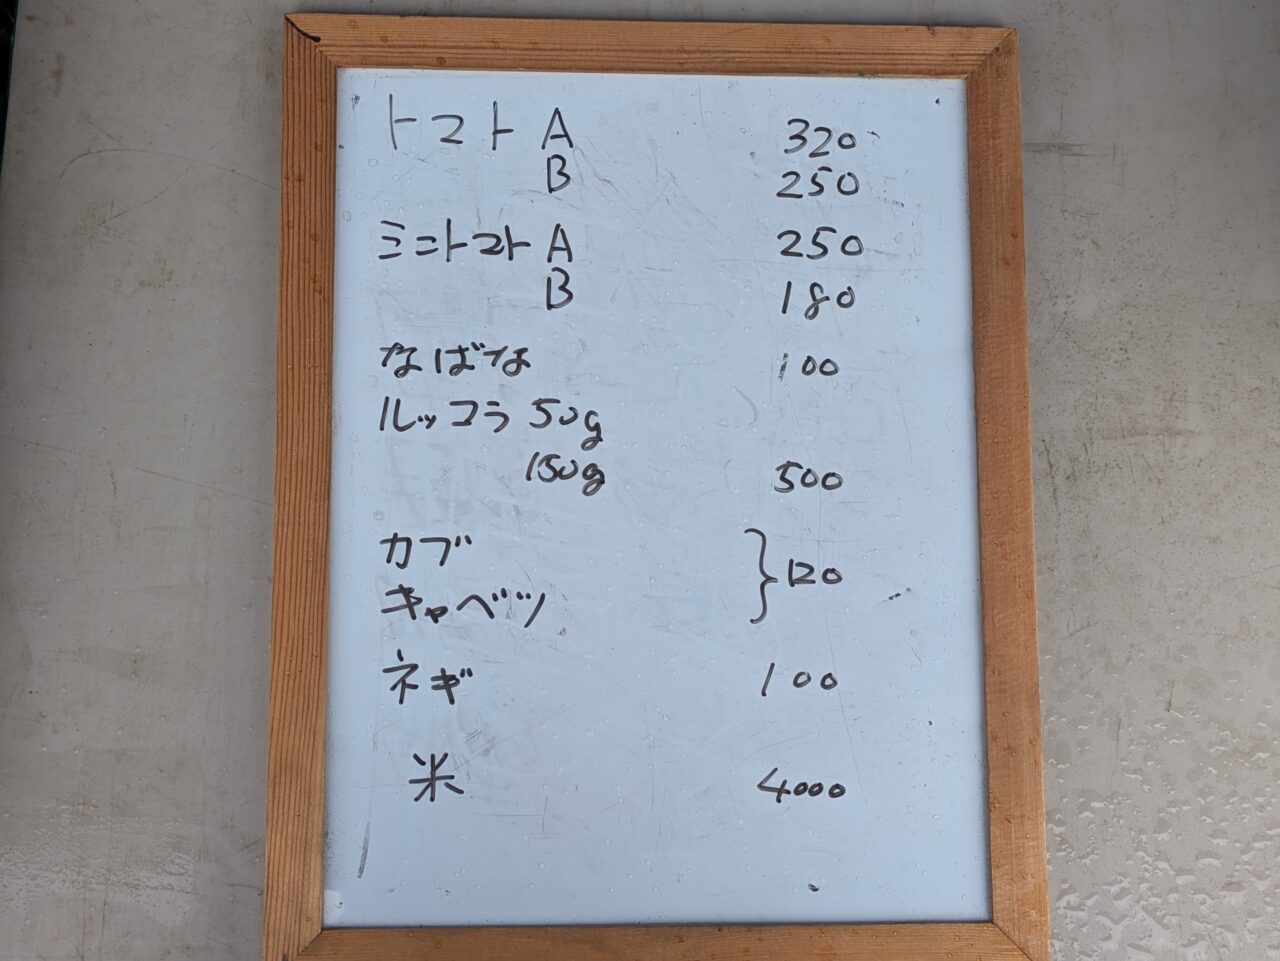 トマト A 320
B 250
ミニトマト A 250
B 180
なばな 100
ルッコラ 50g
150g 500
カブ
キャベツ } 120
ネギ 100
米 4000